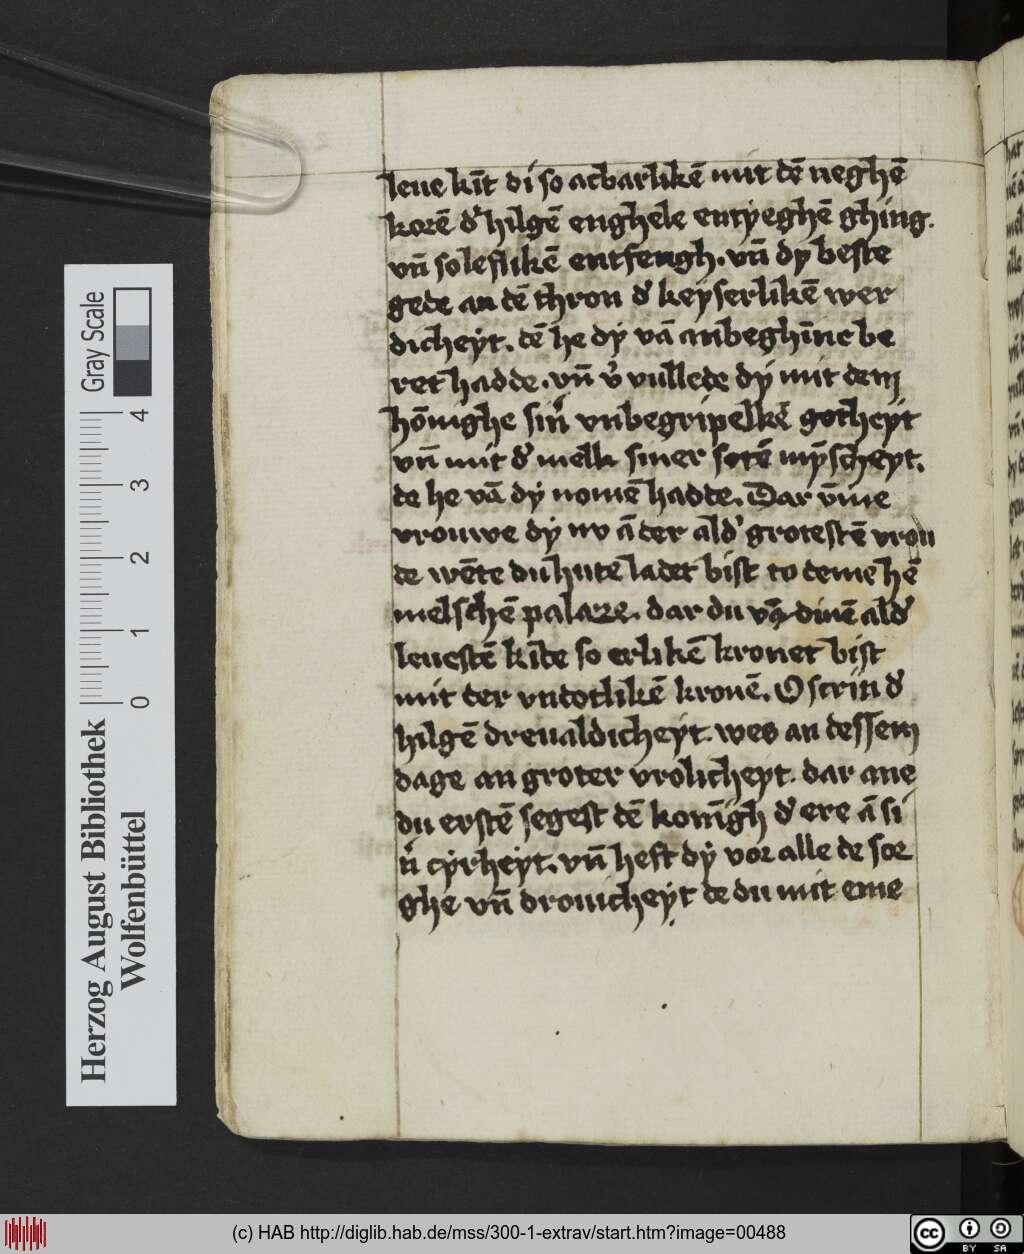 leue kīt di so acbarlikē mit dē neghē
korē d' hilgē enghele entyeghē ghing.
vn̄ so lefflikē entfengh. vn̄ dy beste
gede an dē thron d' keyserlikē wer
dicheyt. dē he dy vā anbeghīne be
ret hadde. vn̄ v' vullede dy mit dem
hōnighe sin' vnbegripelkē gotheyt
vn̄ mit d' melk siner sotē mȳscheyt.
de he vā dy nomē hadde. Dar v̄me
vrouwe dy nv ā der ald' grotestē vrou
de wēte du hute ladet bist to deme hē
melschē palaze. dar du vā dinē ald'
leuestē kīde so erlikē kronet bist
mit der vntotlikē kronē. O scrin d'
hilgē dreualdicheyt. wes an dessem
dage an groter vrolicheyt. dar ane
du erstē segest dē konīgh d' ere ā si
n' cyrheyt. vn̄ heft dy vor alle de sor
ghe vn̄ drouicheyt de du mit eme
Herzog August Bibliothek
Wolfenbüttel
0 1 2 3 4
Gray Scale
(c) HAB http://diglib.hab.de/mss/300-1-extrav/start.htm?image=00488
cc BY SA